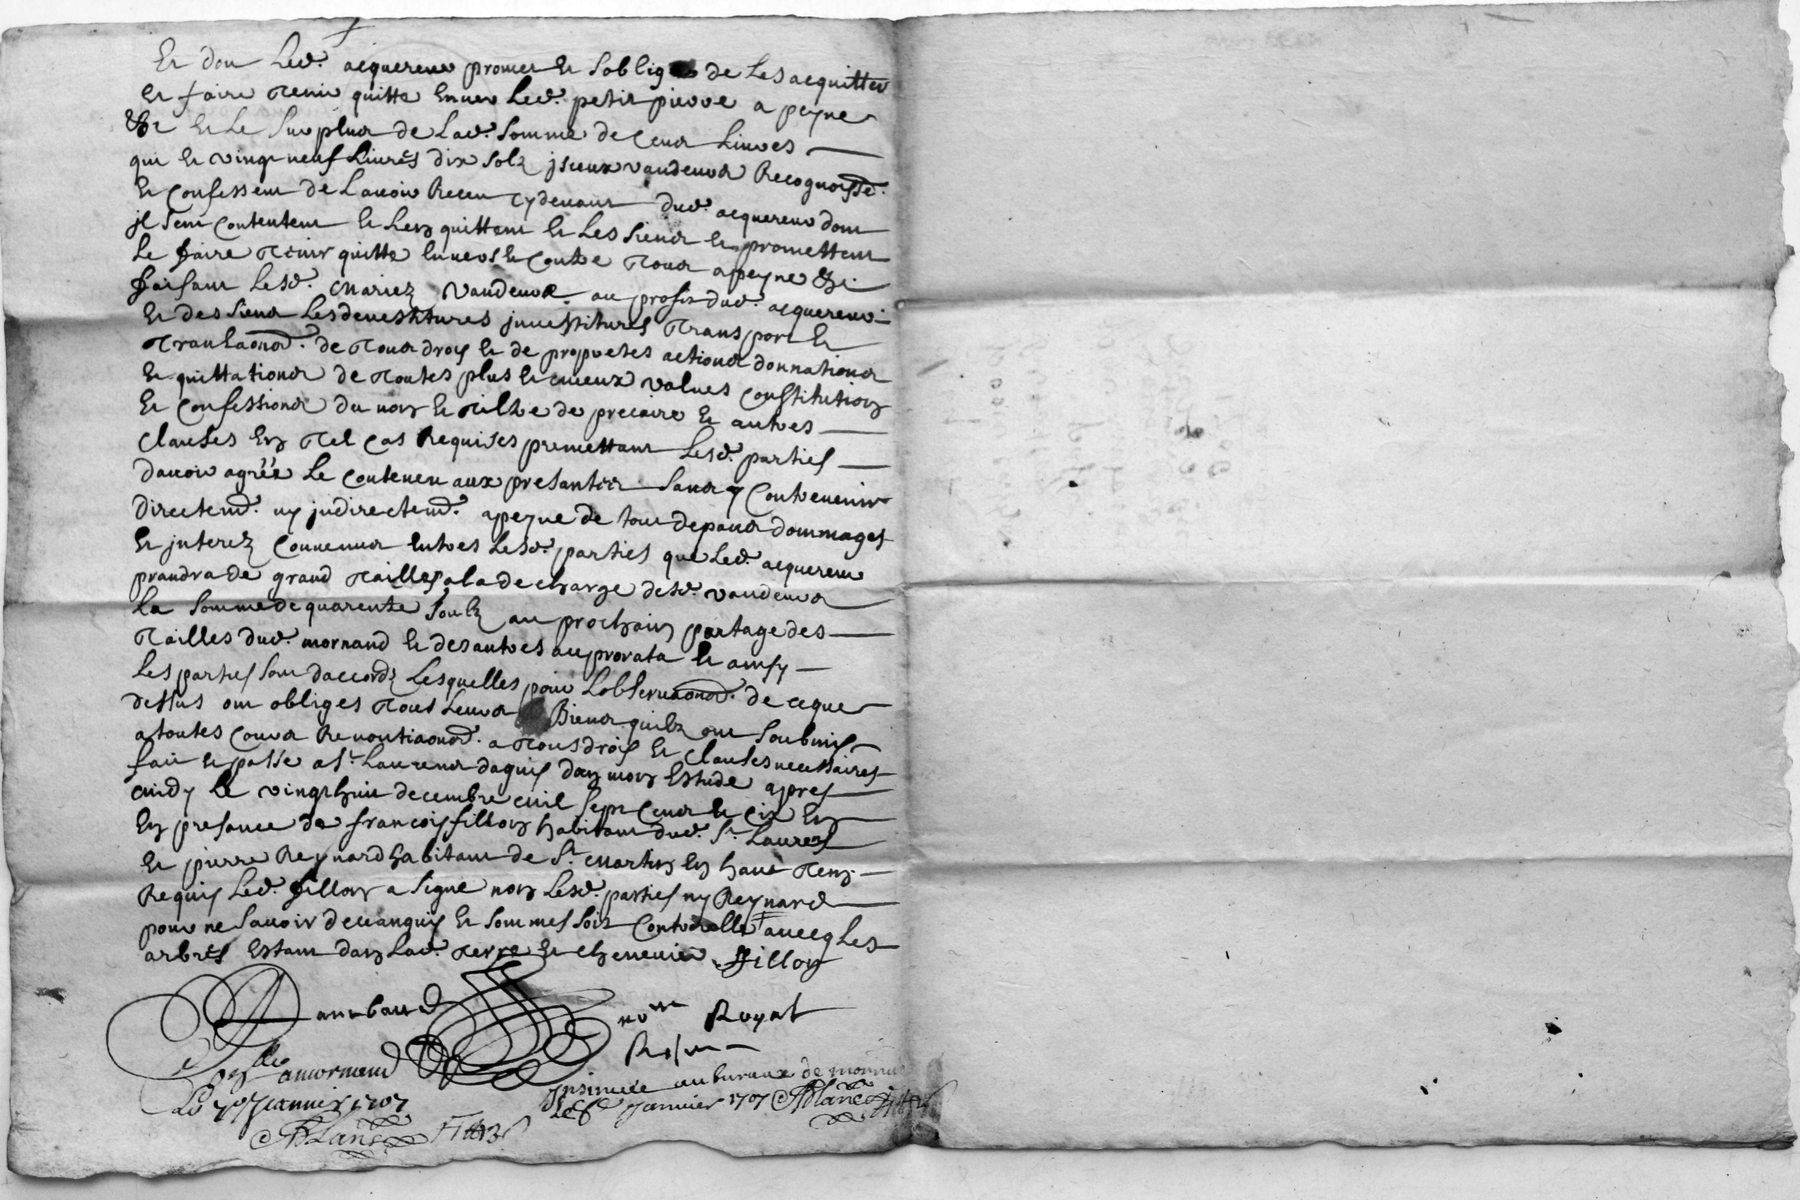 Et don Led. acquereur promet et soblige de les acquitter
et faire tenir quitte envers Led. petit pierre a peyne
&c et le surplus de lad. somme de cent livres
qui et vingt neuf livres dix solz jceux vandeurs Recognoisse.
et confessent de lavoir Receu cydevant dud. acquereur dont
jl sen contentent et len quittent et les siens et promettent
le faire tenir quitte envers et contre tous a peyne &c
faisant lesd. mariez vandeurs au profit dud. acquereur
et des siens les devestitures jnvestitures transport et
translaond. de tous drois et de propretes actions donnations
et quittations de toutes plus et mieux values constitution
et confessions du nom et tiltre de precaire et autres
clauses en tel cas Requises promettant lesd. parties
davoir agréé le contenu aux presantes sans y contrevenir
directemd. ny jndirectemd. a peyne de tous depans dommages
et jnterez convenus entres lesd. parties que led. acquereur
prandra de grand tailles a la decharge desd. vandeurs
la somme de quarente soulz au prochain partage des
tailles dud. mornand et des autres au prorata et ainsy
les parties sont daccordz lesquelles pour lobservaond. de ce que
dessus ont obliges tous leurs Biens quilz ont soubmis
a toutes cours Renontiaond. a tous drois et clauses necessaires
fait et passé a St. Laurens dagny dan mon Estude apres
midy le vingt huit decembre mil sept cens et six En
En presance de francois fillon habitant dud. St. Laurens
et pierre Reynard habitant de St. martin en haut tem.
Requis Led. fillon a signe non lesd. parties ny Reynard
pour ne savoir de ce anquis et sommes soit controlle avecq les
arbres Estant dans lad. terre et cheneviere fillon
no.re Royal
lé a mornand
Le 7e Janvier 1707
Insinuée au bureau de mornan
Le 8e Janvier 1707